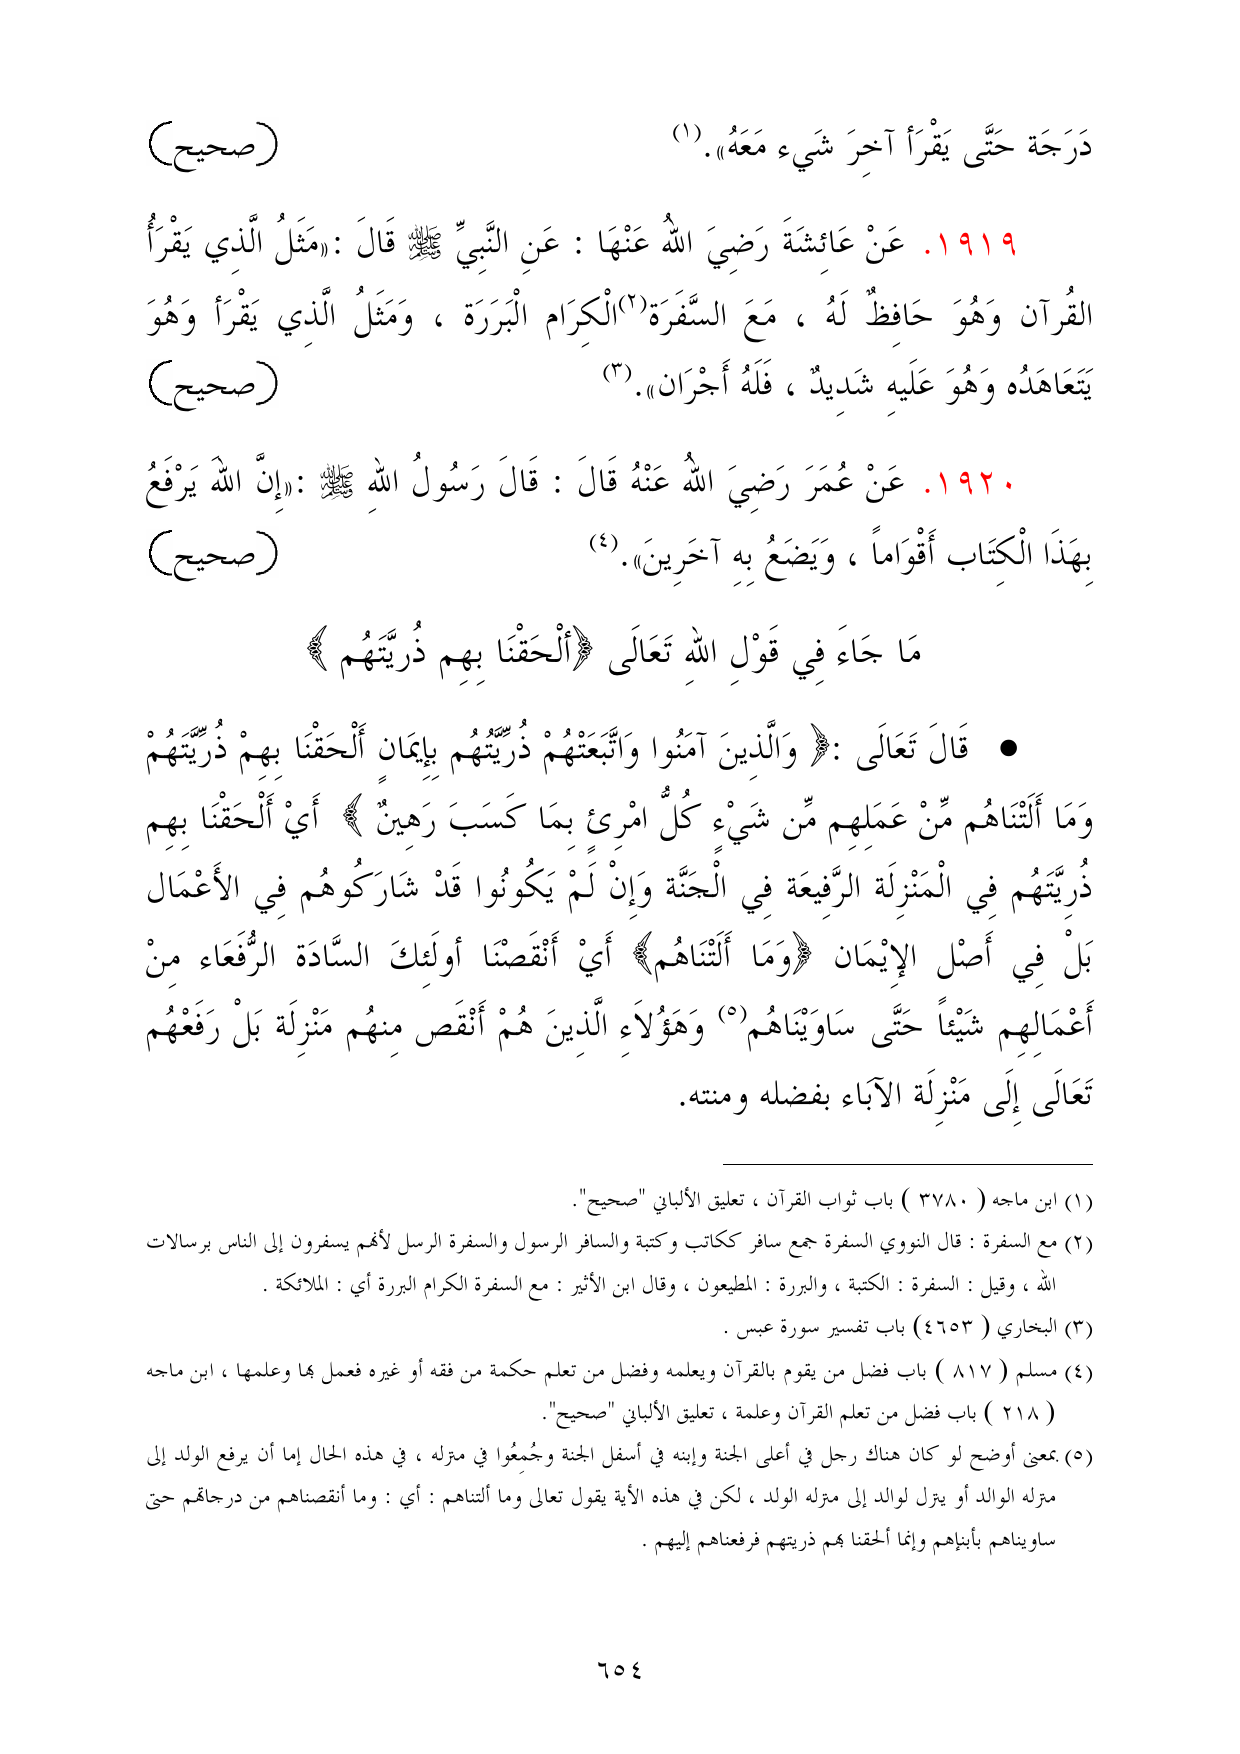 دَرَجَة حَتَّى يَقْرَأ آخِرَ شَيء مَعَهُ».(١) (صحيح)
١٩١٩. عَنْ عَائِشَةَ رَضِيَ اللهُ عَنْهَا : عَنِ النَّبِيِّ ﷺ قَالَ :«مَثَلُ الَّذِي يَقْرَأُ
القُرآن وَهُوَ حَافِظٌ لَهُ ، مَعَ السَّفَرَة(٢)الْكِرَام الْبَرَرَة ، وَمَثَلُ الَّذِي يَقْرَأ وَهُوَ
يَتَعَاهَدُه وَهُوَ عَلَيهِ شَدِيدٌ ، فَلَهُ أَجْرَان».(٣) (صحيح)
١٩٢٠. عَنْ عُمَرَ رَضِيَ اللهُ عَنْهُ قَالَ : قَالَ رَسُولُ اللهِ ﷺ :«إِنَّ اللهَ يَرْفَعُ
بِهَذَا الْكِتَاب أَقْوَاماً ، وَيَضَعُ بِهِ آخَرِينَ».(٤) (صحيح)
مَا جَاءَ فِي قَوْلِ اللهِ تَعَالَى ﴿أَلْحَقْنَا بِهِم ذُرِيَّتَهُم ﴾
● قَالَ تَعَالَى :﴿ وَالَّذِينَ آمَنُوا وَاتَّبَعَتْهُمْ ذُرِّيَّتُهُم بِإِيمَانٍ أَلْحَقْنَا بِهِمْ ذُرِّيَّتَهُمْ
وَمَا أَلَتْنَاهُم مِّنْ عَمَلِهِم مِّن شَيْءٍ كُلُّ امْرِئٍ بِمَا كَسَبَ رَهِينٌ ﴾ أَيْ أَلْحَقْنَا بِهِم
ذُرِيَّتَهُم فِي الْمَنْزِلَة الرَّفِيعَة فِي الْجَنَّة وَإِنْ لَمْ يَكُونُوا قَدْ شَارَكُوهُم فِي الأَعْمَال
بَلْ فِي أَصْل الإِيْمَان ﴿وَمَا أَلَتْنَاهُم﴾ أَيْ أَنْقَصْنَا أولَئِكَ السَّادَة الرُّفَعَاء مِنْ
أَعْمَالِهِم شَيْئاً حَتَّى سَاوَيْنَاهُم(٥) وَهَؤُلاَءِ الَّذِينَ هُمْ أَنْقَص مِنهُم مَنْزِلَة بَلْ رَفَعْهُم
تَعَالَى إِلَى مَنْزِلَة الآبَاء بفضله ومنته.
(١) ابن ماجه ( ٣٧٨٠ ) باب ثواب القرآن ، تعليق الألباني "صحيح".
(٢) مع السفرة : قال النووي السفرة جمع سافر ككاتب وكتبة والسافر الرسول والسفرة الرسل لأنهم يسفرون إلى الناس برسالات
الله ، وقيل : السفرة : الكتبة ، والبررة : المطيعون ، وقال ابن الأثير : مع السفرة الكرام البررة أي : الملائكة .
(٣) البخاري ( ٤٦٥٣) باب تفسير سورة عبس .
(٤) مسلم ( ٨١٧ ) باب فضل من يقوم بالقرآن ويعلمه وفضل من تعلم حكمة من فقه أو غيره فعمل بها وعلمها ، ابن ماجه
( ٢١٨ ) باب فضل من تعلم القرآن وعلمة ، تعليق الألباني "صحيح".
(٥) بمعنى أوضح لو كان هناك رجل في أعلى الجنة وإبنه في أسفل الجنة وجُمِعُوا في منزله ، في هذه الحال إما أن يرفع الولد إلى
منزله الوالد أو ينزل لوالد إلى منزله الولد ، لكن في هذه الأية يقول تعالى وما ألتناهم : أي : وما أنقصناهم من درجاتهم حتى
ساويناهم بأبنإهم وإنما ألحقنا بهم ذريتهم فرفعناهم إليهم .
٦٥٤